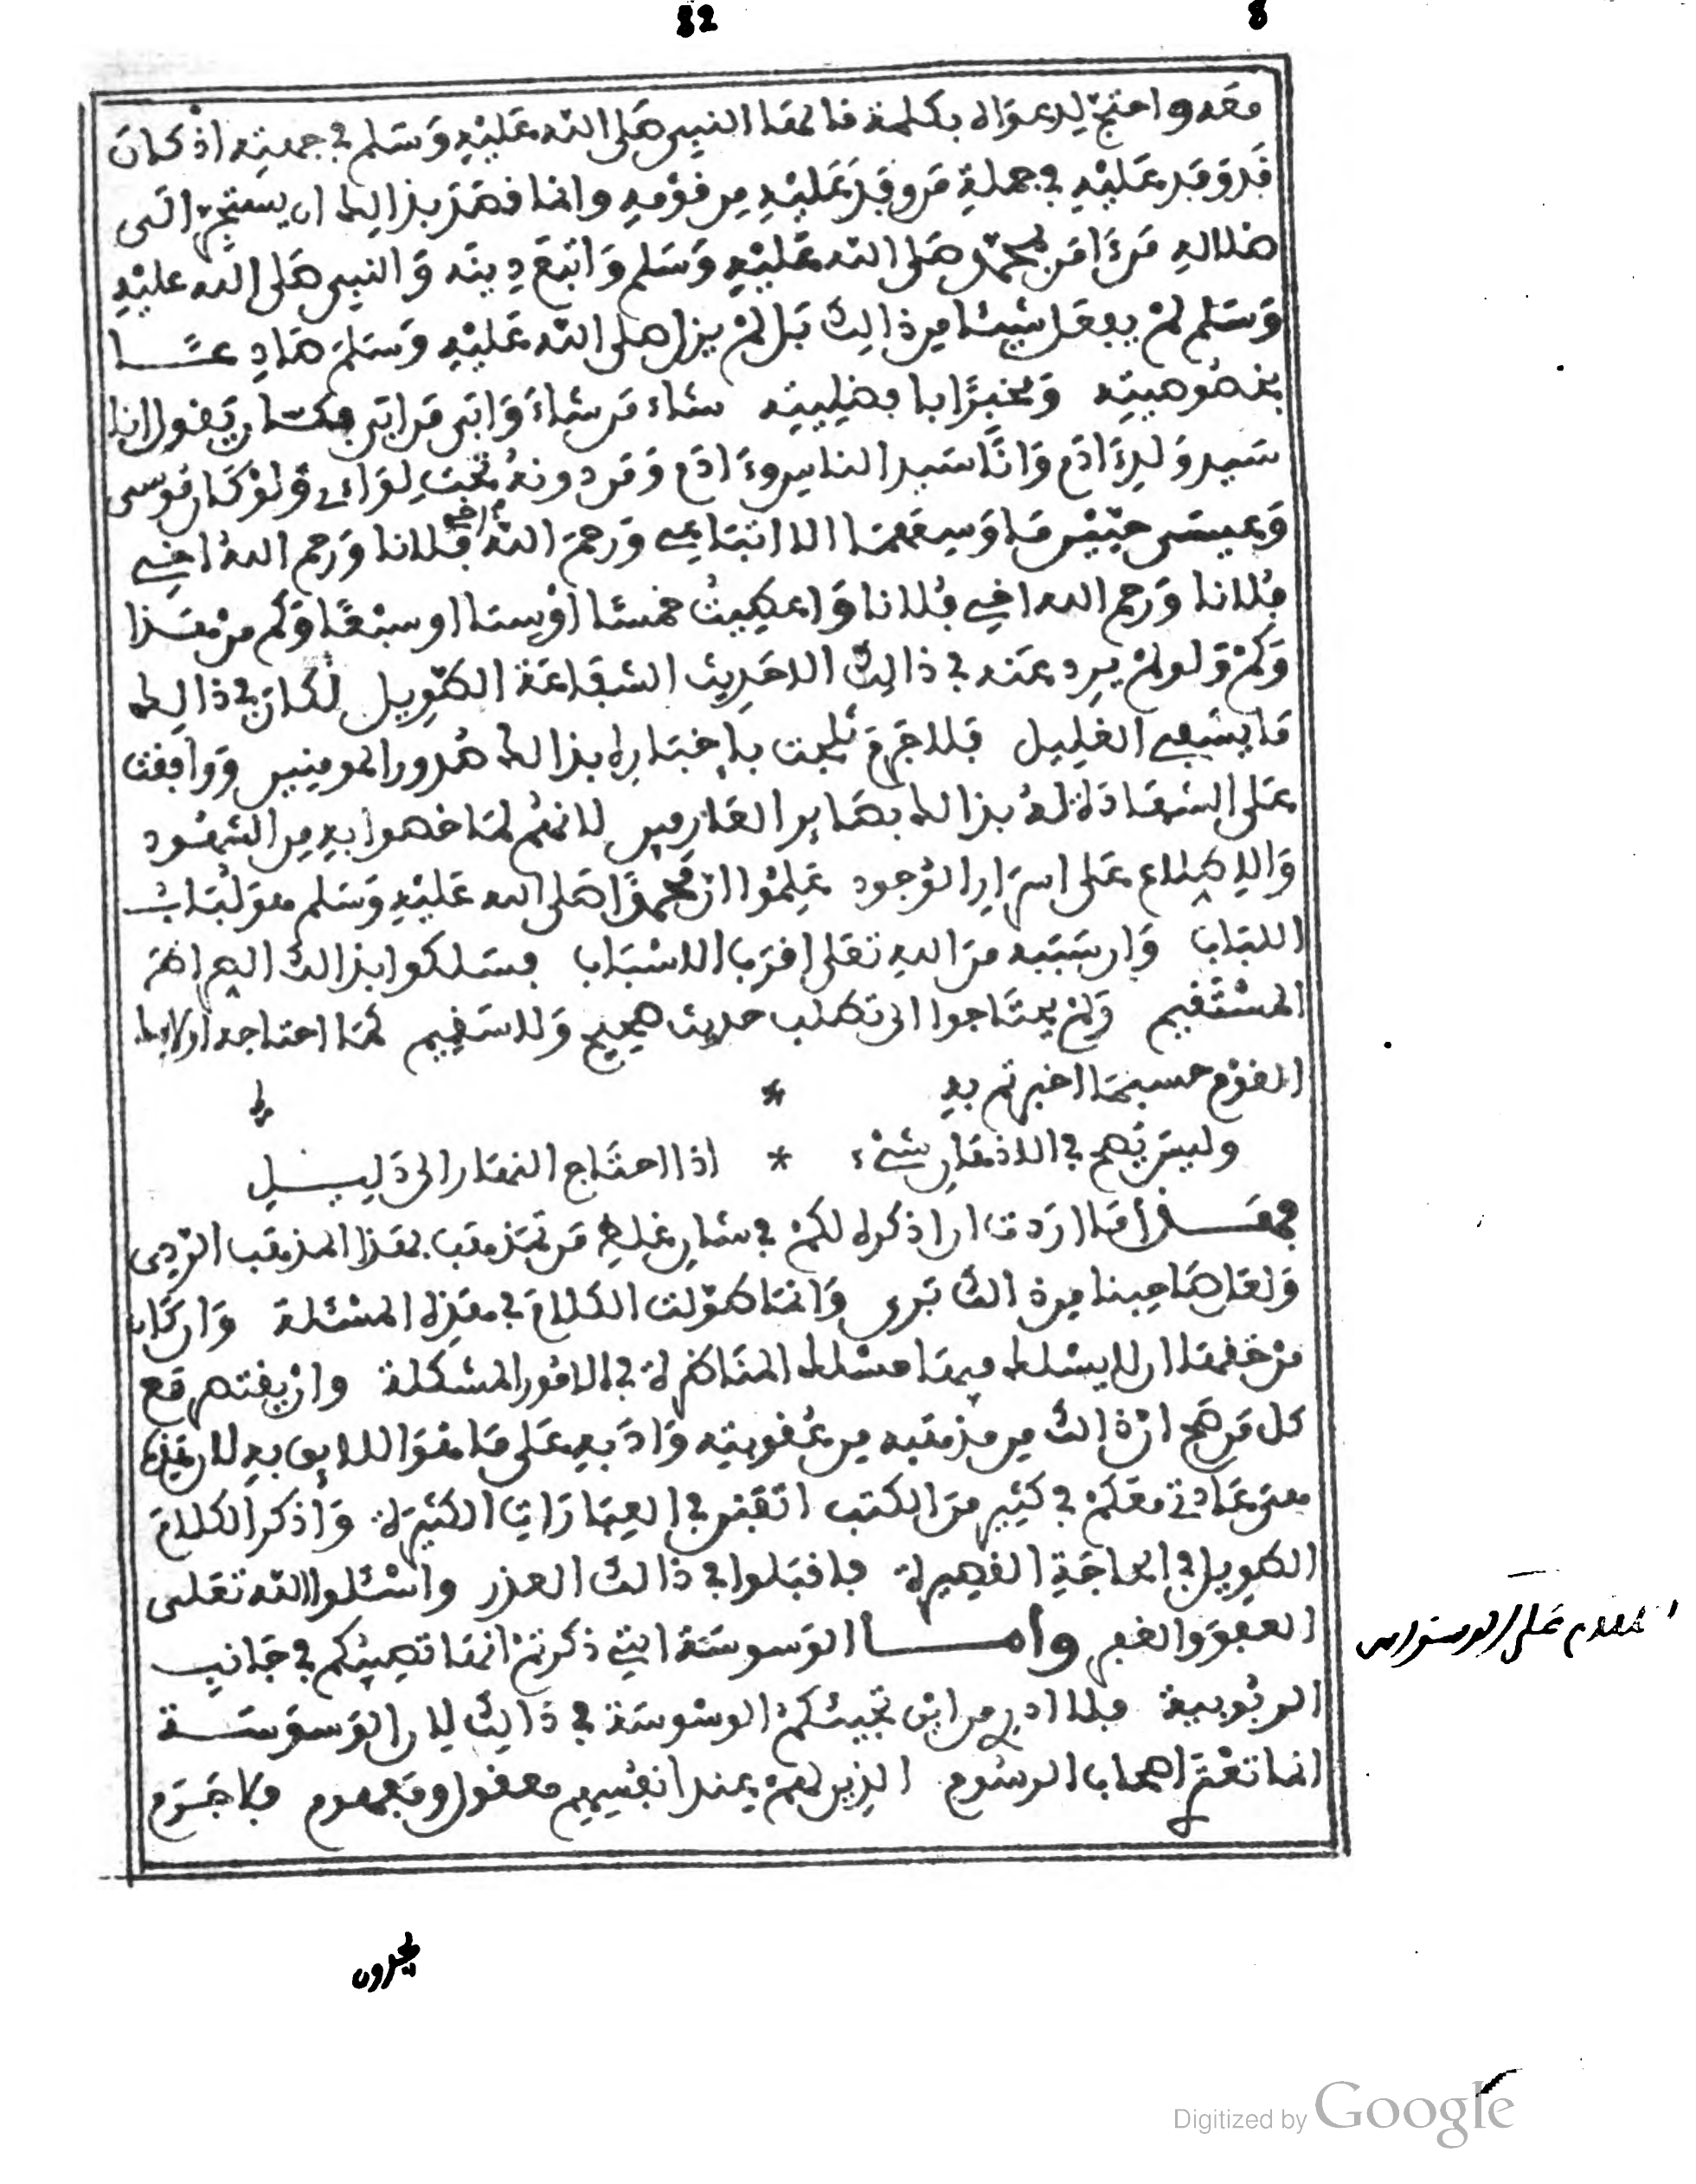 8
32
معه واحتج لدعواه بكلمة قالها النبي صلى الله عَلَيْهِ وَسَلم في جهته اذْ كَانَ
قَد وَفد عَلَيْهِ في جملةِ مَن وفَدَ عَلَيْهِ مِن قَوْمِهِ وانما قصَدَ بذالك ان يستجر الى
ضلاله مَن ءَامَن بمحمّد صَلى الله عَلَيْهِ وَسَلم وَاتبَعَ دِينَه وَالنبي صَلى الله عليْهِ
وَسَلم لمْ يفعل شيئا من ذالك بَل لمْ يزل صلى الله عَلَيْهِ وَسَلمَ صَادِعًا
بخصُوصيته وَمخبرًا بافضليته شاء مَن شاءَ وَابَى مَن ابَى فكان يَقول انا
سَيد وَلدِ ءَادَمَ وَانَا سَيد الناس وءَادَم وَمَن دونهُ تحْتَ لِوَاءي وَلوْ كَان مُوسى
وَعيسَى حيّيْن مَا وَسِعهمَا الا اتبَاعِي وَرحمَ الله اخي فلانا وَرحم اللهُ اخِي
فُلانا وَرحم الله اخي فُلانا وَاعطِيتُ خمسًا اوْ ستا او سبْعًا وَكم مِنْ هَذا
وَكمْ وَلو لمْ يرد عَنه في ذالك الا حَدِيث الشفاعَة الطّوِيل لكَانَ في ذالِك
مَا يشفي الغَلِيل فلا جَرَمَ ثلجت باخبَارِه بذالك صُدور المومنين وَوافقت
عَلى الشهَادَة لهُ بذالك بصَائر العَارِفين لانهُم لمَا خصوا بهِ مِن الشهُود
وَالاِطلاع عَلى اسرَار الوُجود عَلِمُوا انّ محمدًا صَلى الله عَليْهِ وَسَلم هوَ لُبَابُ
اللبَاب وَان سَبَبه مِنَ الله تعَلى اقرَب الاسْبَاب فسَلكوا بذالك الصراط
المسْتَقيم وَلمْ يحتَاجوا الى تطلب حديث صحيح وَلا سَقيم كمَا احتاجه اولايك
القوْم حسبمَا اخبرتم بهِ
وليسَ يَصح في الاذهَان شيْء * اذا احتَاج النهَار الى دَلِيلِ
فهَذا مَا ارَدت ان اذكره لكمْ في شان غلط مَن تمَذهَب بهَذا المذهَب الرّدِى
وَلعَل صَاحِبنا من ذالك بَرى وَانمَا طوّلت الكلامَ في هَذِه المسْئلة وَان كَان
مِنْ حَقهَا ان لا يسْلك فيهَا مسْلك المنَاظرة في الامُور المشكلة وانْ يقتصر مَع
كل مَن صَح انّ ذالك مِن مَذهَبه مِن عُقوبته وَادَبِهِ عَلى مَا هُوَ اللايق بهِ لان هَذِه
هي عَادتي معَكمْ في كثيرٍ مِنَ الكتب اتَفَنن في العِبارَاتِ الكثيرَة وَاذكر الكلامَ
الطوِيل في الحاجَةِ القصِيرة فاقبَلوا في ذالك العذر واسْئلوا الله تعَلى
العفوَ وَالغفر وامَّا الوَسوسَة التي ذكرتمْ انهَا تصِيبُكم في جَانِب
الربُوبية فلا ادرِي مِن ايْن تجيئكمْ الوسْوسَة في ذالِك لان الوَسوَسَة
انما تعْترِي اصحاب الرسُوم الذين لهمْ عند انفسِهم معقول ومَفهوم فلا جَرَم
الكلام عَلى الوسواس
يجدون
Digitized by Google